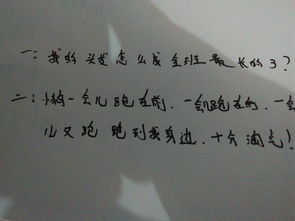 一：我的头发怎么成全班最长的了？
二：小狗一会儿跑在前，一会儿跑在后，一会
儿又跑跑到我身边，十分淘气！